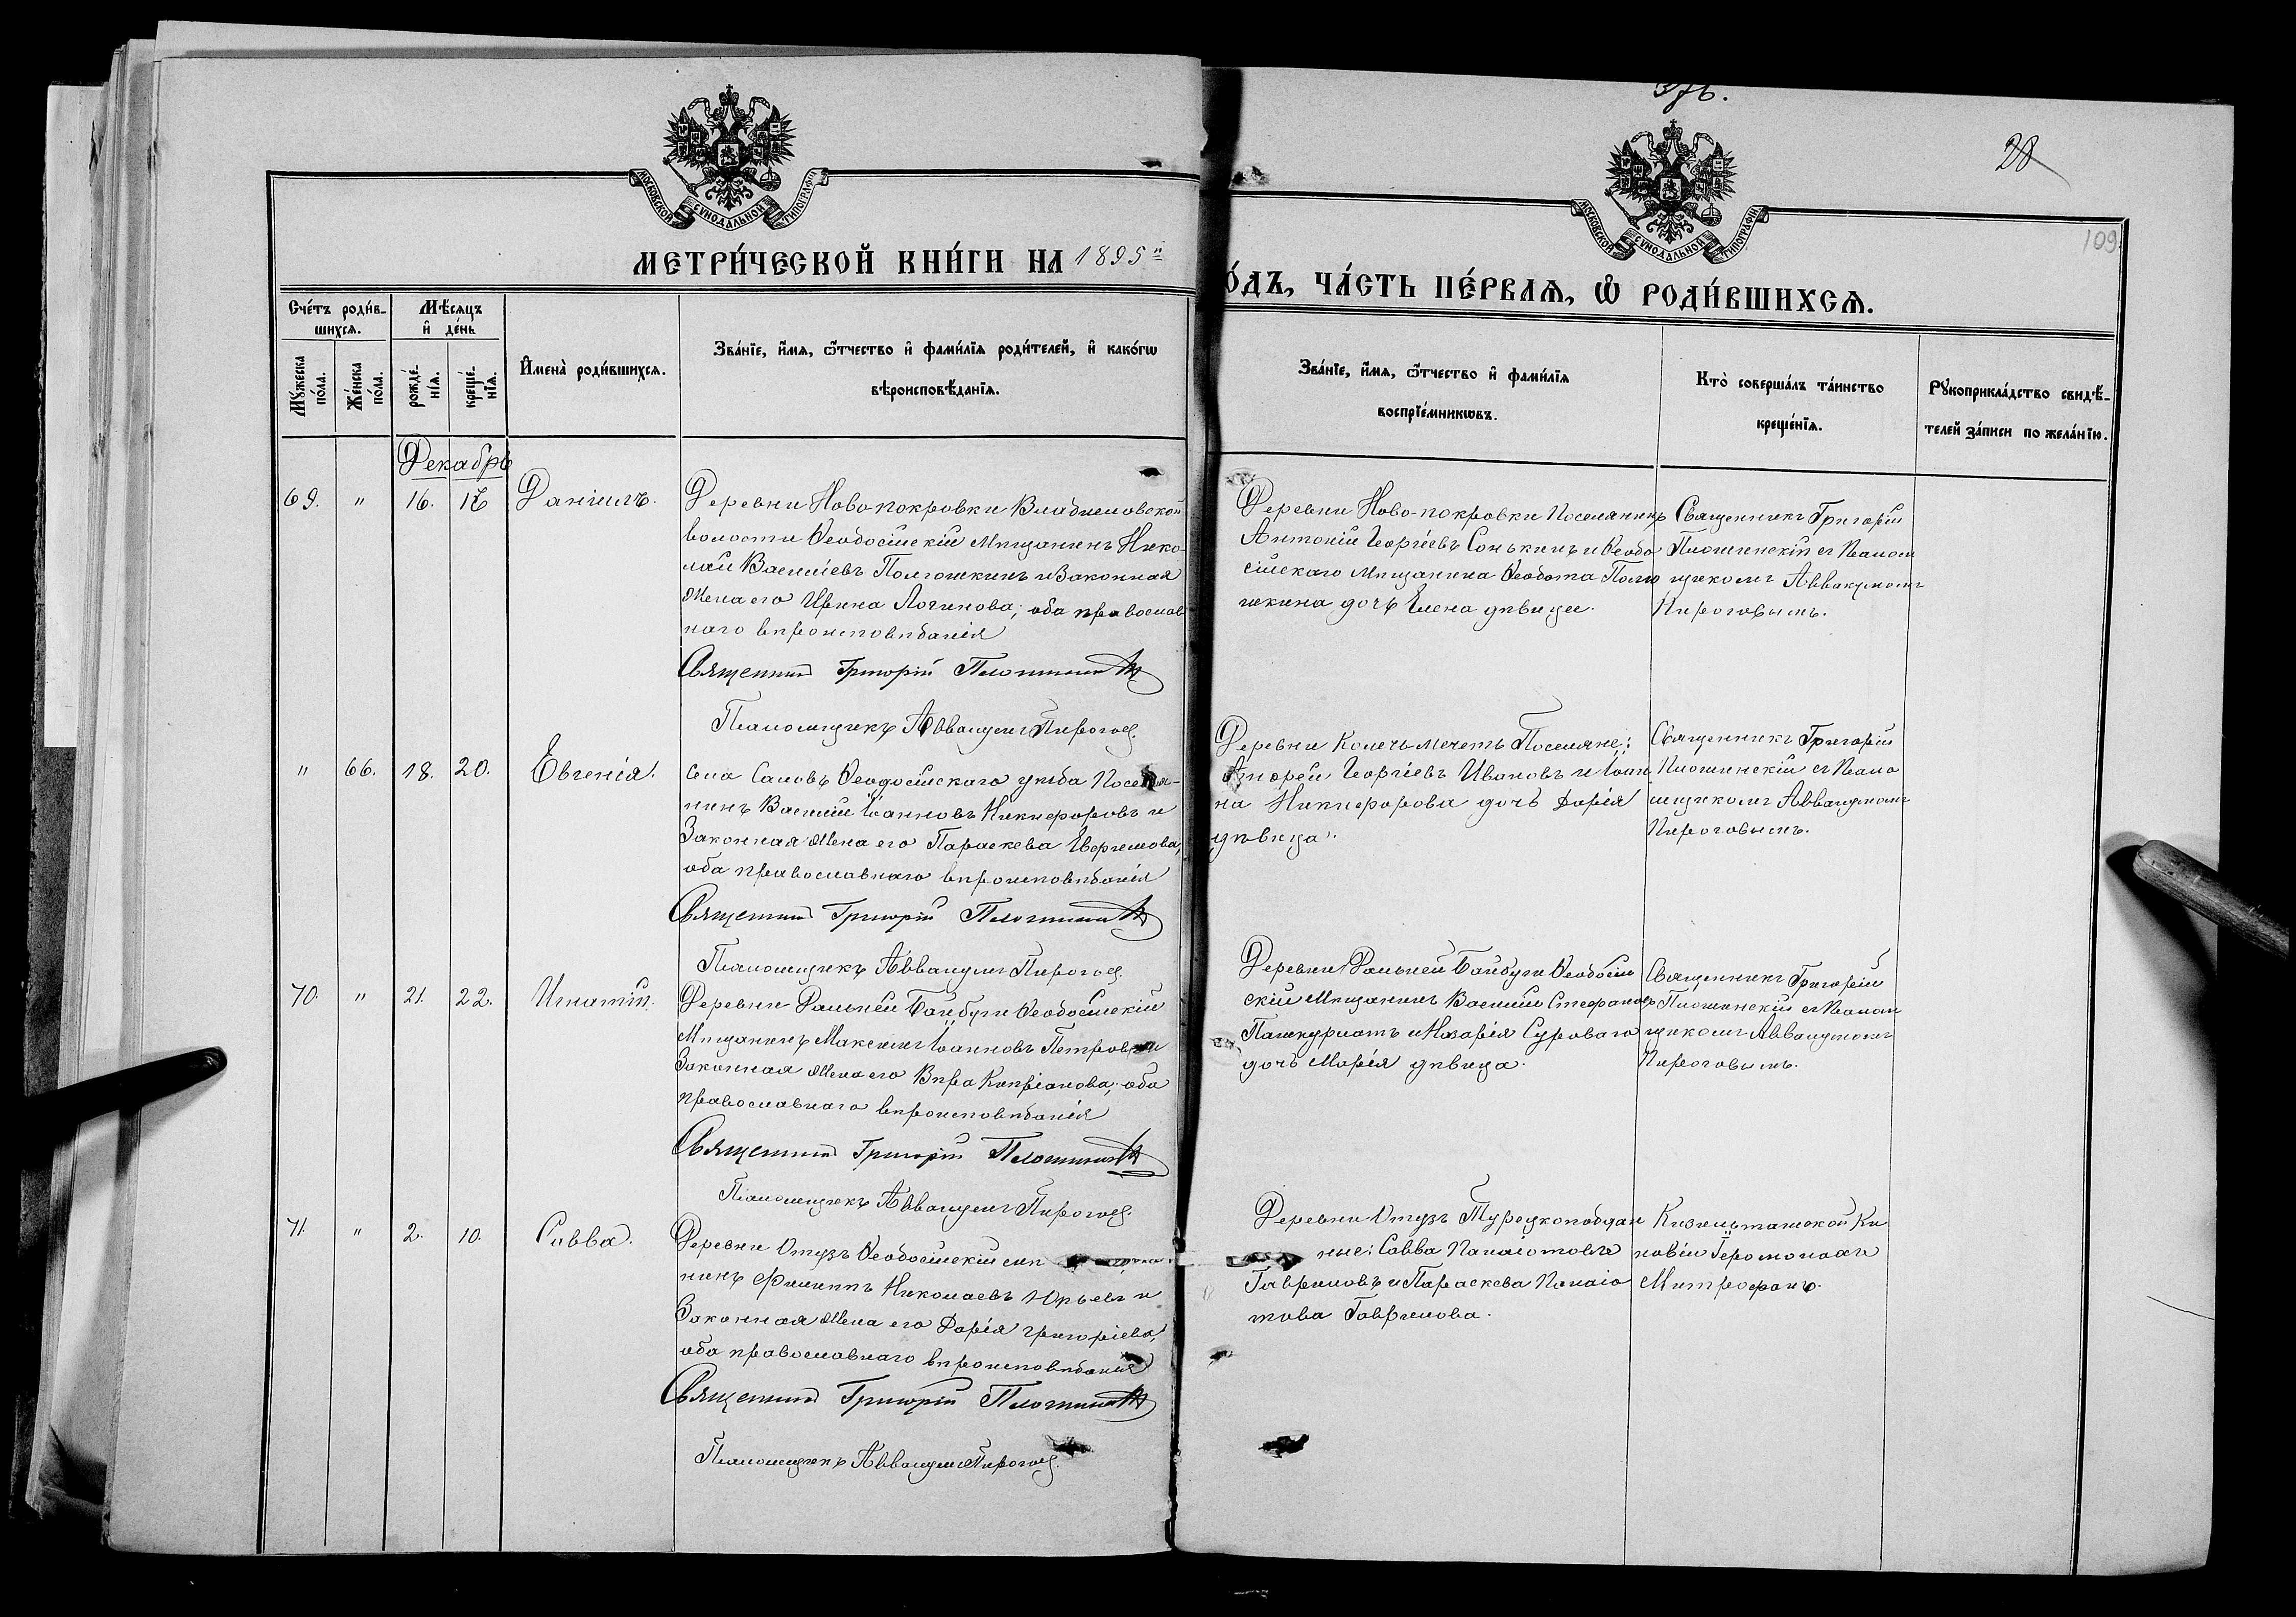 376.
28
109
МОСКОВСКОЙ СѴНОДАЛЬНОЙ ТИПОГРАФІИ
МОСКОВСКОЙ СѴНОДАЛЬНОЙ ТИПОГРАФІИ
МЕТРИ́ЧЕСКОЙ КНИ́ГИ НА 1895й
О́ДЪ, ЧА́СТЬ ПЕ́РВАѦ, Ѡ РОДИ́ВШИХСѦ.
Сче́тъ роди́в-
шихсѧ.
Мꙋ́жеска по́ла.
Же́нска по́ла.
Мѣ́сѧцъ
и҆ де́нь
рожде́-
нїѧ.
креще́-
нїѧ.
И҆мена̀ роди́вшихсѧ.
Зва́нїе, и҆́мѧ, ѻ҆́тчество и҆ фами́лїѧ роди́телей, и҆ како́гѡ
вѣроисповѣ́данїѧ.
Зва́нїе, и҆́мѧ, ѻ҆́тчество и҆ фами́лїѧ
воспрїе́мникѡвъ.
Кто̀ соверша́лъ та́инство
креще́нїѧ.
Рꙋкоприкла́дство свидѣ́-
телей за́писи по жела́нїю.
Декабрь
69. " 16. 17 Даніилъ.
Деревни Ново-покровки Владиславовской
волости Ѳеодосійскій Мѣщанинъ Нико-
лай Василіевъ Полюшкинъ и Законная
Жена его Ирина Логинова; оба православ
наго вѣроисповѣданія
Священник Григорій
Псаломщикъ Аввакумъ Пирогов.
Деревни Ново-покровки Поселянинъ
Антоній Георгіевъ Сонькинъ и Ѳеодо
сійскаго Мѣщанина Ѳеодота Полю
шкина дочь Елена дѣвица.
Священникъ Григорій
съ Псалом
щикомъ Аввакумомъ
Пироговымъ.
" 66. 18. 20. Евгенія.
Села Саловъ Ѳеодосійскаго уѣзда Поселя-
нинъ Василій Іоанновъ Никифоровъ и
Законная Жена его Параскева
оба православнаго вѣроисповѣданія
Священник Григорій
Псаломщикъ Аввакумъ Пирогов.
Деревни Колечь-мечеть Поселяне:
Андрей Георгіевъ Ивановъ и Іоан
на Никифорова дочь Дарія
дѣвица.
Священникъ Григорій
съ Псало
мщикомъ Аввакумомъ
Пироговымъ.
70. " 21. 22. Игнатій.
Деревни Дальней Байбуги Ѳеодосійскій
Мѣщанинъ Максимъ Іоанновъ Петровъ и
Законная Жена его Вѣра Кипріанова; оба
православнаго вѣроисповѣданія
Священник Григорій
Псаломщикъ Аввакумъ Пирогов.
Деревни Дальней Байбуги Ѳеодосій
скій Мѣщанинъ Василій Стефановъ
Пашкурлатъ и Назарія Суроваго
дочь Марія дѣвица.
Священникъ Григорій
съ Псалом
щикомъ Аввакумомъ
Пироговымъ.
71. " 2. 10. Савва.
Деревни Отузъ Ѳеодосійскій
нинъ Филиппъ Николаевъ Юрьевъ и
Законная Жена его Дарія Григоріева,
оба православнаго вѣроисповѣданія
Священник Григорій
Псаломщикъ Аввакумъ Пирогов.
Деревни Отузъ Турецкоподдан
ные: Савва Панаіотовъ
Гавриловъ и Параскева Панаіо
това Гаврилова.
Кизильташской Ки
новіи Іеромонахъ
Митрофанъ.